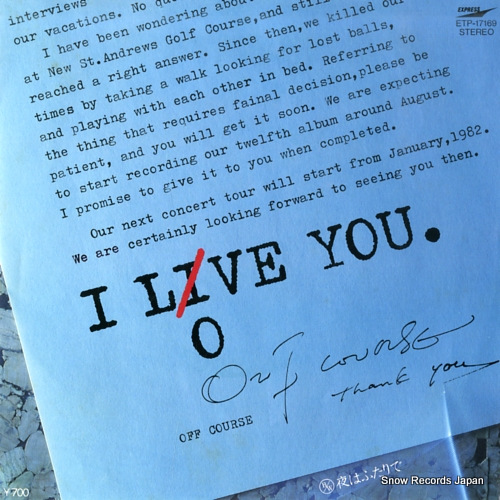 interviews
our vacations. No
I have been wondering about
at New St.Andrews Golf Course,and still
reached a right answer. Since then,we killed our
times by taking a walk looking for lost balls,
and playing with each other in bed. Referring to
the thing that requires fainal decision,please be
patient, and you will get it soon. We are expecting
to start recording our twelfth album around August.
I promise to give it to you when completed.
Our next concert tour will start from January,1982.
We are certainly looking forward to seeing you then.
I LIVE YOU.
O
Off Course
Thank you
OFF COURSE
B/W 夜はふたりで
¥700
EXPRESS
ETP-17169
STEREO
Snow Records Japan